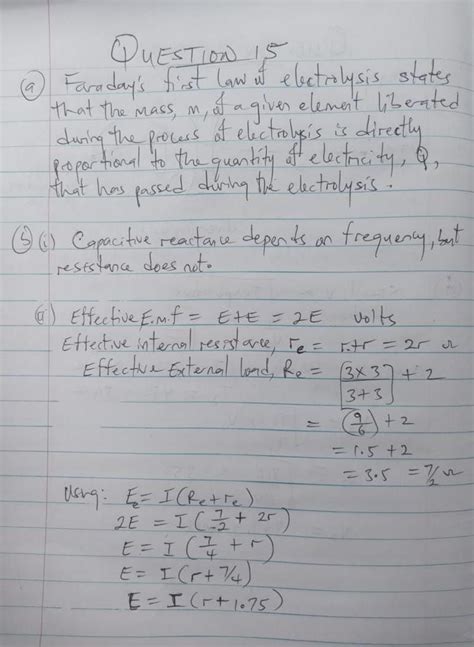 QUESTION 15
(a) Faraday's first law of electrolysis states
that the mass, m, of a given element liberated
during the process of electrolysis is directly
proportional to the quantity of electricity, Q,
that has passed during the electrolysis.
(b) (i) Capacitive reactance depends on frequency, but
resistance does not.
(ii) Effective E.m.f = E+E = 2E volts
Effective internal resistance, re = r+r = 2r Ω
Effective External load, Re = [3×3/3+3] + 2
= (9/6) + 2
= 1.5 + 2
= 3.5 = 7/2 Ω
Using: Ee = I(Re+re)
2E = I(7/2 + 2r)
E = I(7/4 + r)
E = I(r + 7/4)
E = I(r + 1.75)